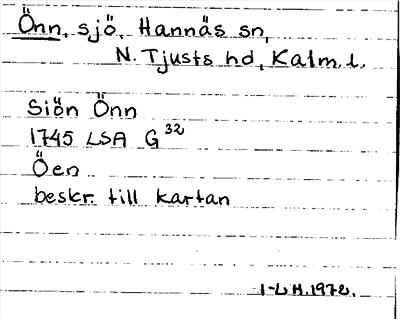 Önn, sjö, Hannäs sn,
N. Tjusts hd, Kalm. l.
Siön Önn
1745 LSA G 32
Öen
beskr. till kartan
I-L H. 1972.